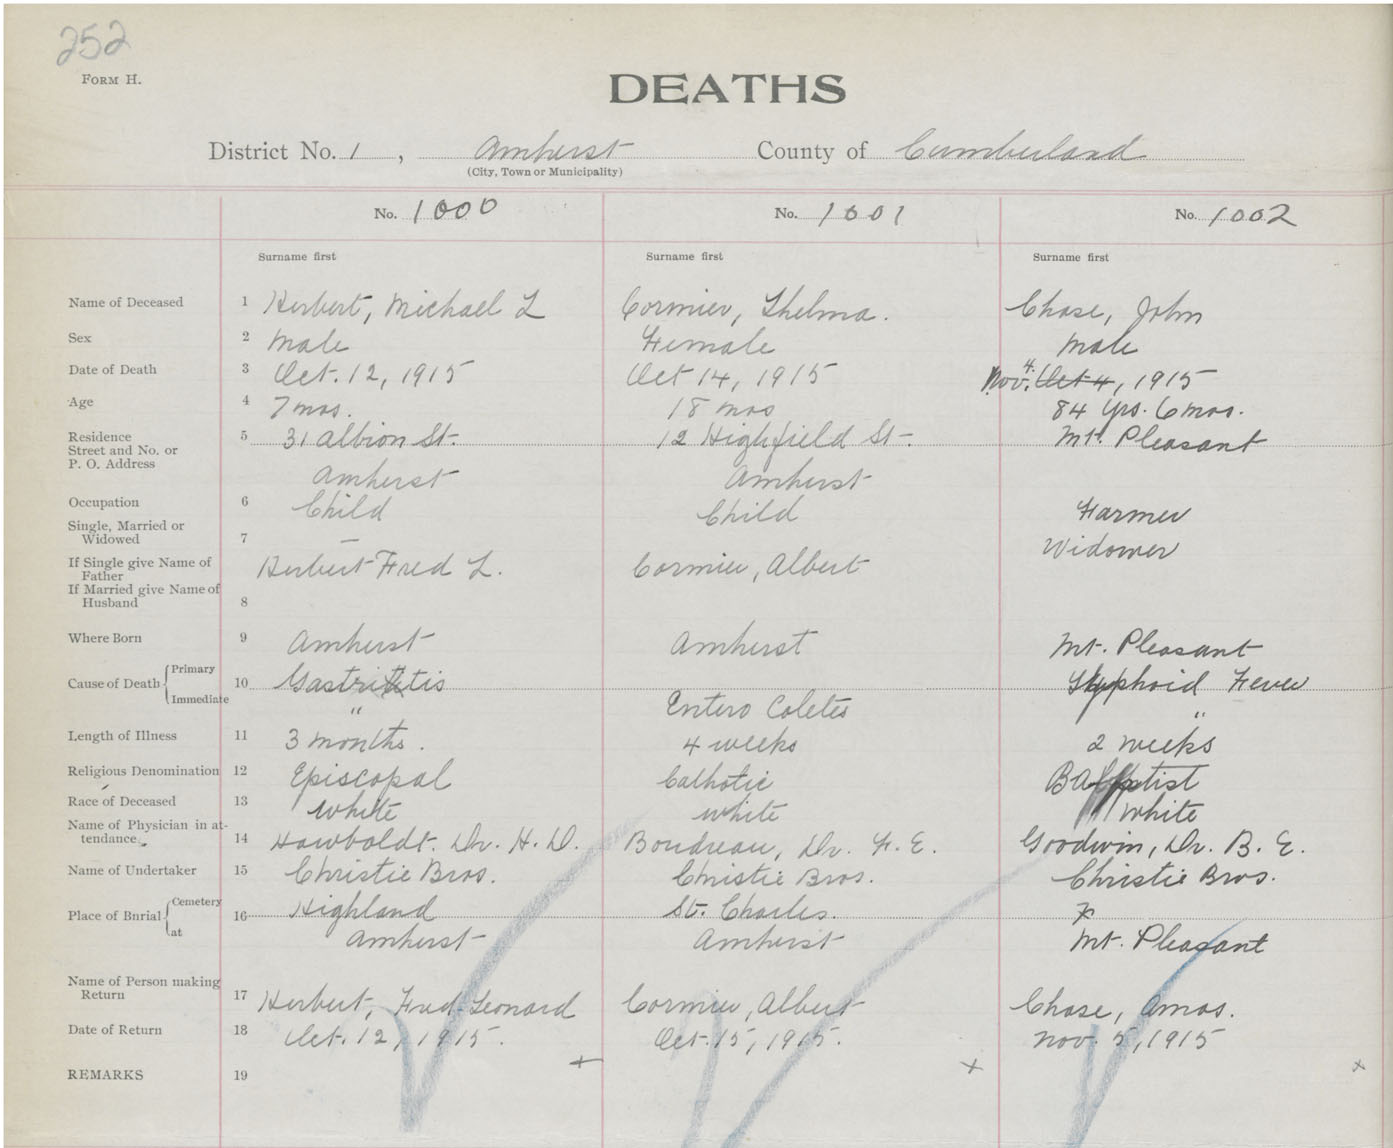 252
FORM H.
DEATHS
District No. 1, Amherst County of Cumberland
(City, Town or Municipality)
No. 1000 No. 1001 No. 1002
Surname first Surname first Surname first
Name of Deceased 1 Herbert, Michael L Cormier, Thelma. Chase, John
Sex 2 Male Female Male
Date of Death 3 Oct. 12, 1915 Oct 14, 1915 Nov. 4. Oct 4, 1915
Age 4 7 mos. 18 mos 84 yrs. 6 mos.
Residence 5 31 Albion St. 12 Highfield St. Mt. Pleasant
Street and No. or
P. O. Address Amherst Amherst
Occupation 6 Child Child Farmer
Single, Married or
Widowed 7 — Widower
If Single give Name of Herbert Fred L. Cormier, Albert
Father
If Married give Name of
Husband 8
Where Born 9 Amherst Amherst Mt. Pleasant
Primary
Cause of Death 10 Gastritis Typhoid Fever
Immediate " Entero Coletes "
Length of Illness 11 3 months. 4 weeks 2 weeks
Religious Denomination 12 Episcopal Catholic Baptist
Race of Deceased 13 White White White
Name of Physician in at-
tendance 14 Hawboldt. Dr. H. D. Boudreau, Dr. F. E. Goodwin, Dr. B. E.
Name of Undertaker 15 Christie Bros. Christie Bros. Christie Bros.
Cemetery
Place of Burial 16 Highland St. Charles.
at Amherst Amherst Mt. Pleasant
Name of Person making
Return 17 Herbert, Fred Leonard Cormier, Albert Chase, Amos.
Date of Return 18 Oct. 12, 1915. Oct. 15, 1915. Nov. 5, 1915
x x x
REMARKS 19